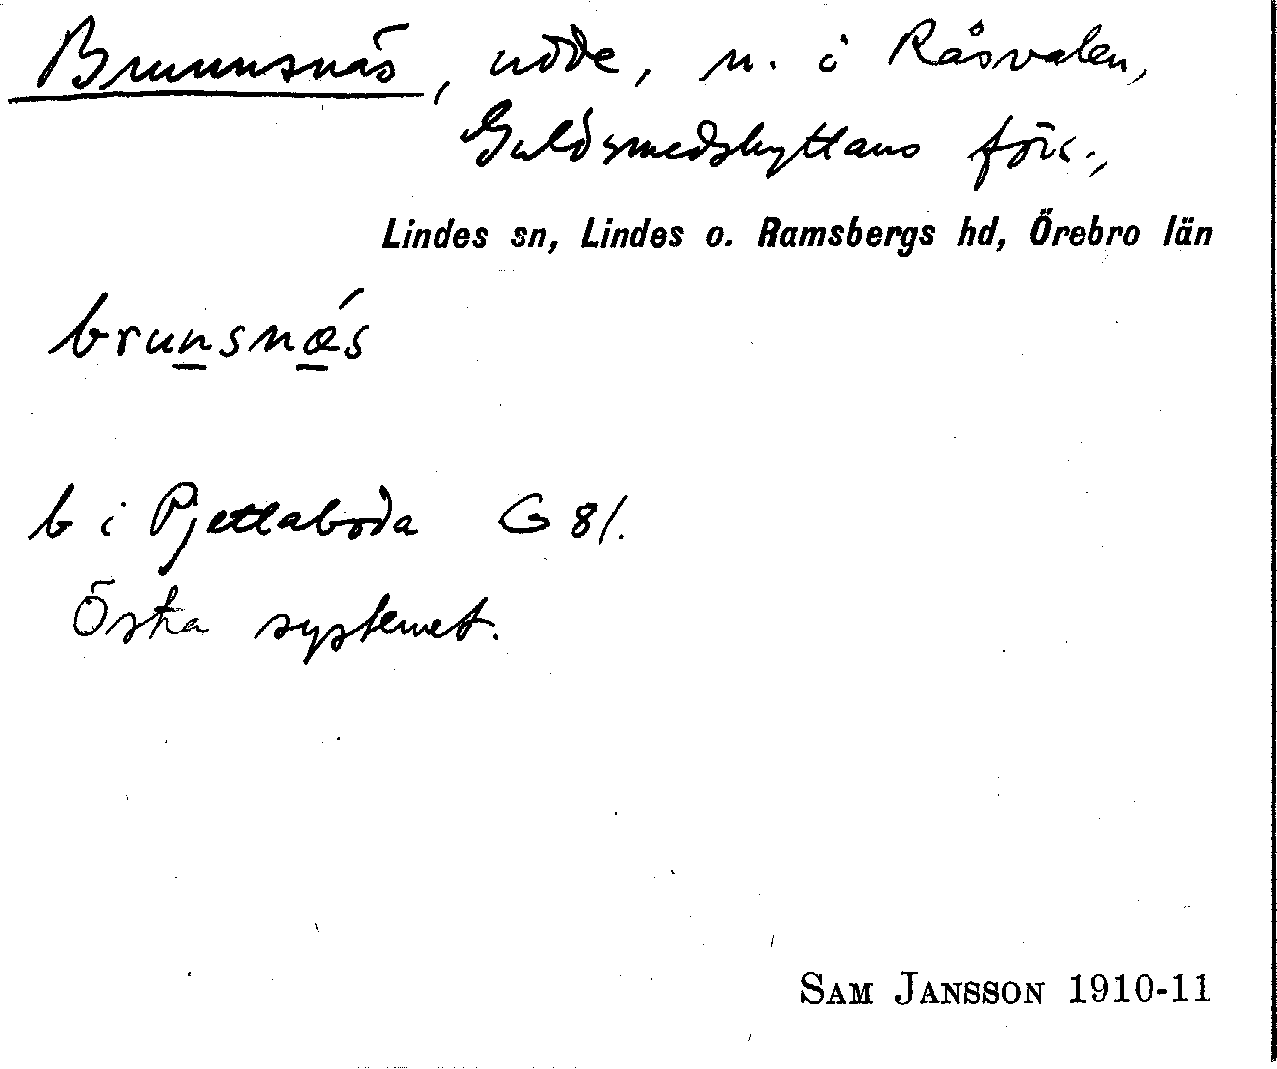 Brunnsnäs, udde, n. i Råsvalen,
Guldsmedshyttans förs.,
Lindes sn, Lindes o. Ramsbergs hd, Örebro län
brunsnǽs
b i Pjettaboda G 81.
Östra systemet.
SAM JANSSON 1910-11